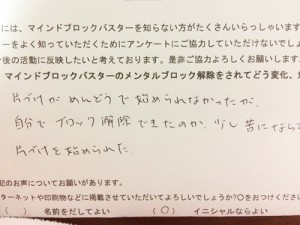 には、マインドブロックバスターを知らない方がたくさんいらっしゃいます
ーをよく知っていただくためにアンケートにご協力していただけないでしょ
後の活動に反映したいと考えております。是非ご協力よろしくお願いします。
マインドブロックバスターのメンタルブロック解除をされてどう変化、
片づけがめんどうで始められなかったが、
自分でブロック解除できたのか、少し苦になら
片づけを始められた
記のお声についてお願いがあります。
ターネットや印刷物などに掲載させていただいてよろしいでしょうか?○をおつけくださ
( ) 名前をだしてよい (○) イニシャルならよい